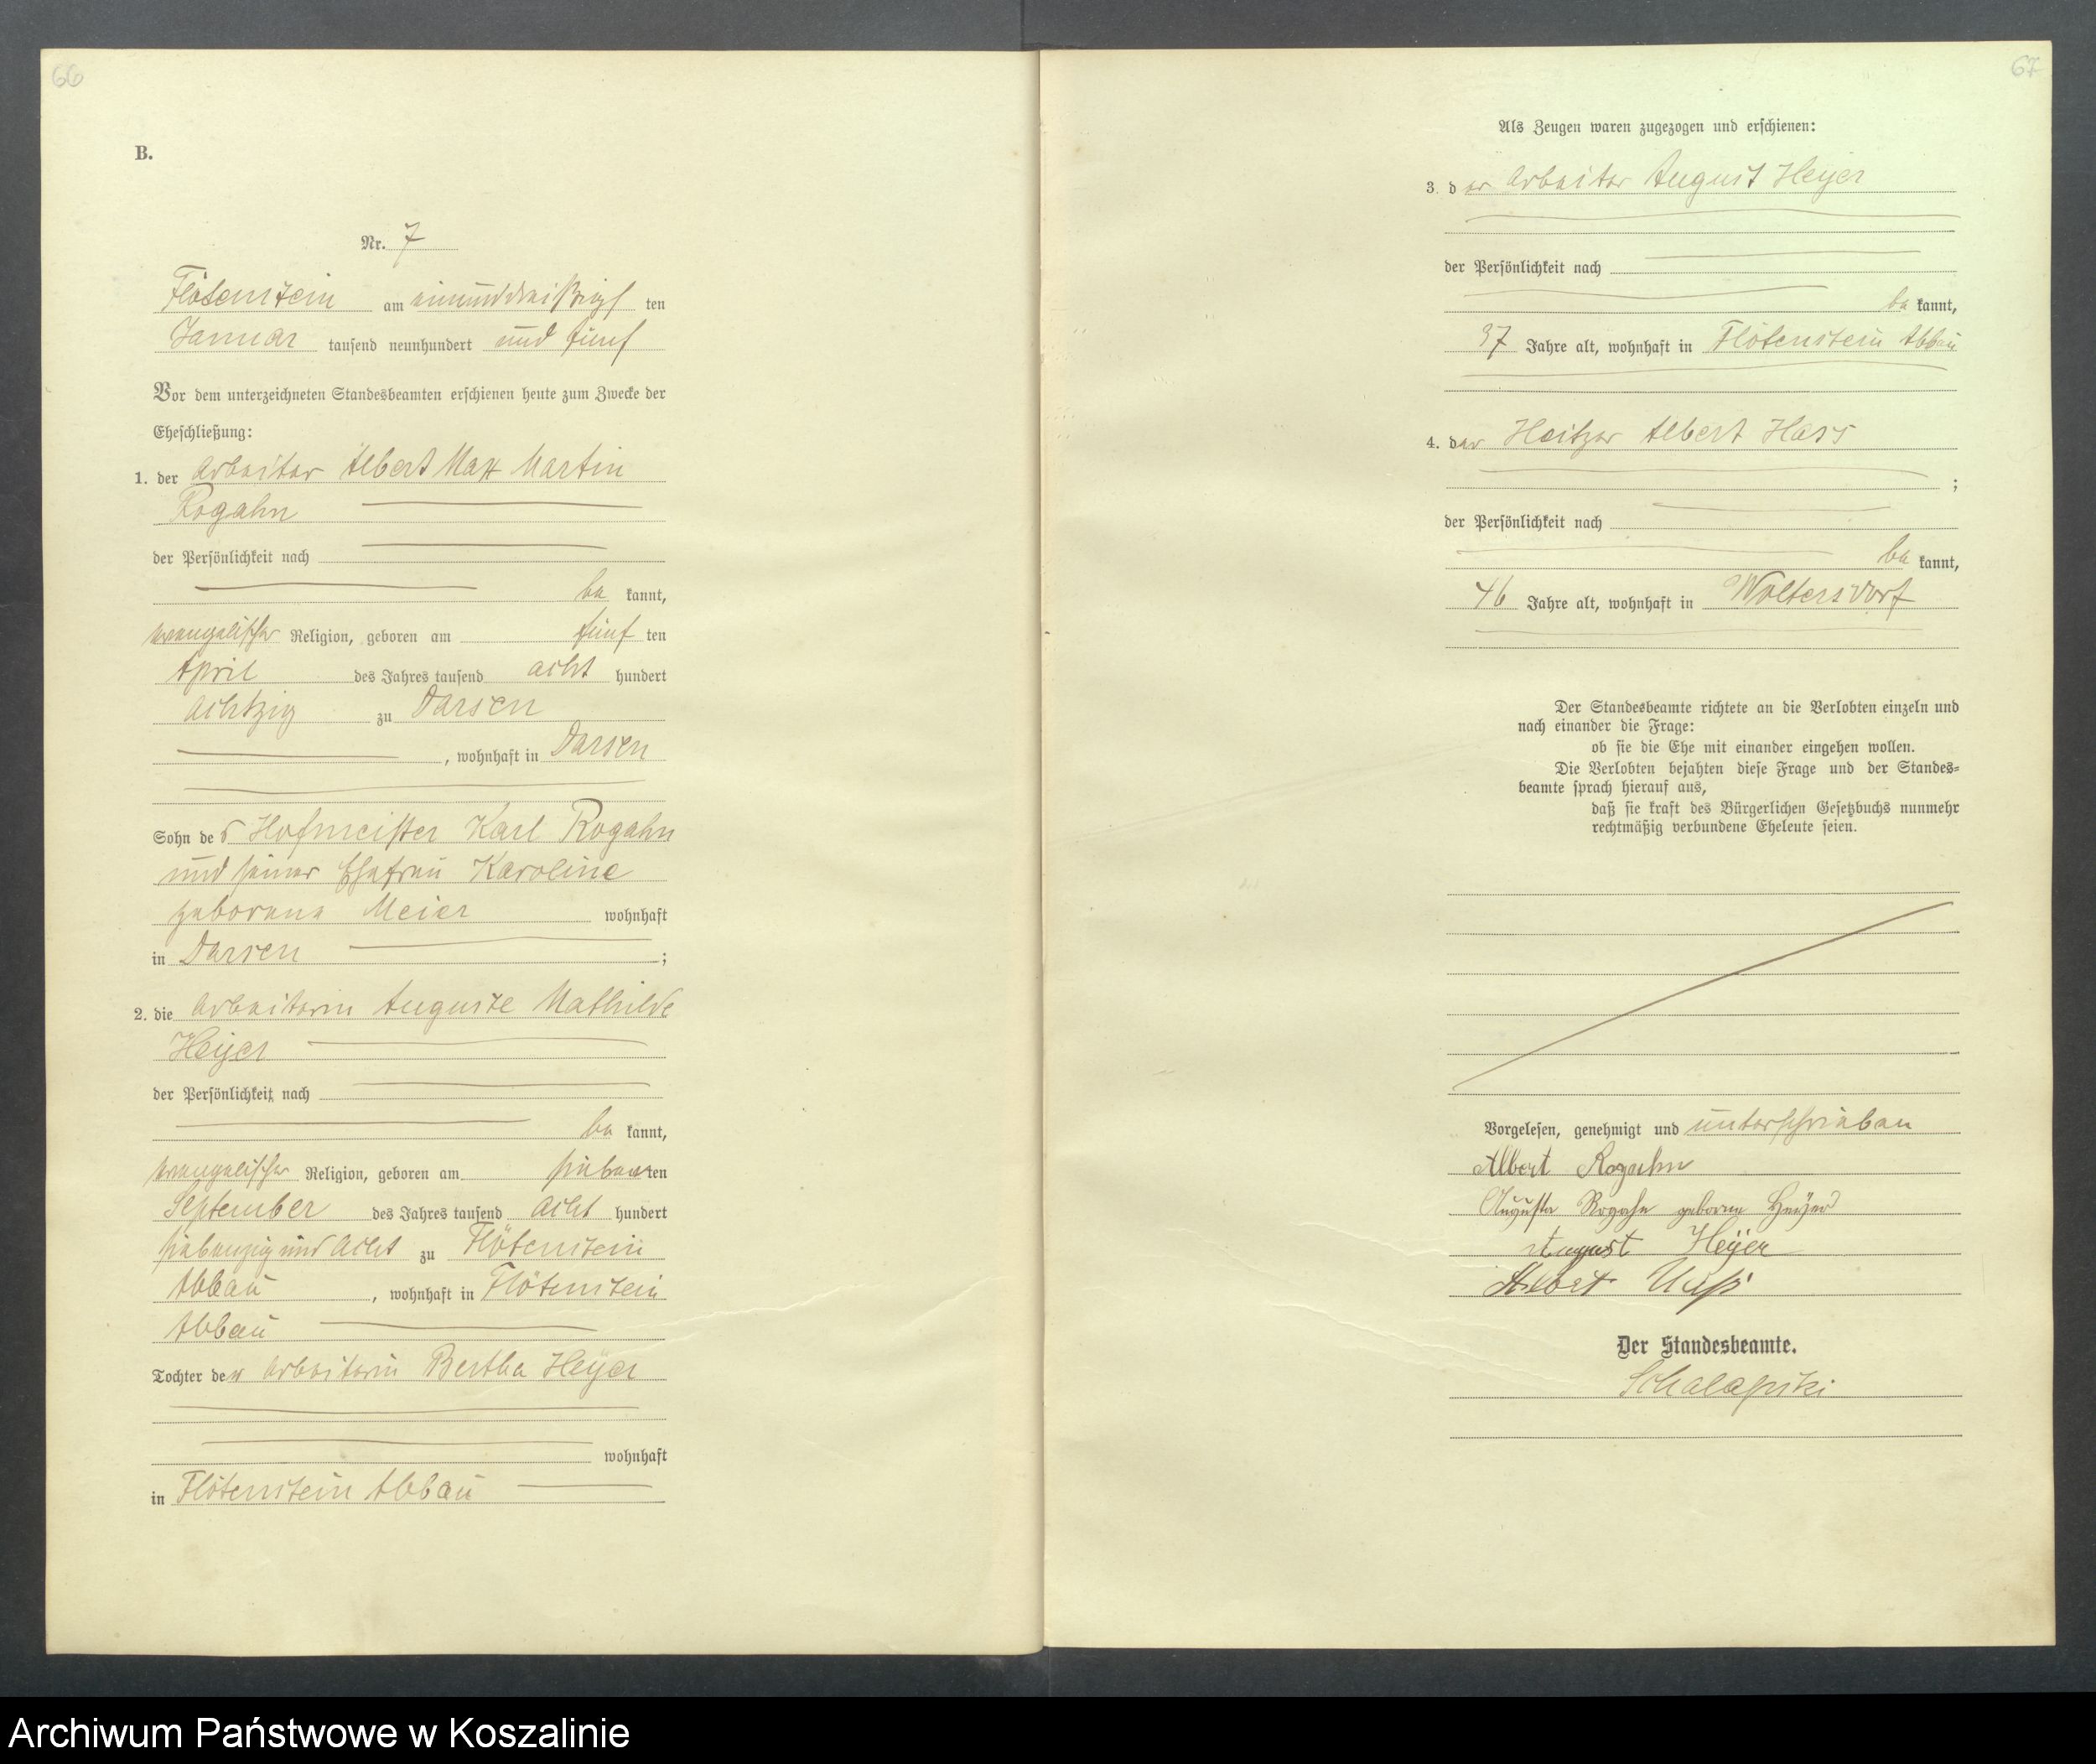 66
B.
Nr. 7
Flötenstein am einunddreißigs ten
Januar tausend neunhundert und fünf
Vor dem unterzeichneten Standesbeamten erschienen heute zum Zwecke der
Eheschließung:
1. der Arbeiter Albert Max Martin
Rogahn
der Persönlichkeit nach
be kannt,
evangelischer Religion, geboren am fünf ten
April des Jahres tausend acht hundert
achtzig zu Darsen
, wohnhaft in Darsen
Sohn des Hofmeister Karl Rogahn
und seiner Ehefrau Karoline
geborene Meier wohnhaft
in Darsen ;
2. die Arbeiterin Auguste Mathilde
Heyer
der Persönlichkeit nach
be kannt,
evangelischer Religion, geboren am sieben ten
September des Jahres tausend acht hundert
siebenzig und acht zu Flötenstein
Abbau , wohnhaft in Flötenstein
Abbau
Tochter der Arbeiterin Bertha Heyer
wohnhaft
in Flötenstein Abbau
67
Als Zeugen waren zugezogen und erschienen:
3. der Arbeiter August Heyer
der Persönlichkeit nach
be kannt,
37 Jahre alt, wohnhaft in Flötenstein Abbau
4. der Heitzer Albert Hass
;
der Persönlichkeit nach
be kannt,
46 Jahre alt, wohnhaft in Woltersdorf
Der Standesbeamte richtete an die Verlobten einzeln und
nach einander die Frage:
ob sie die Ehe mit einander eingehen wollen.
Die Verlobten bejahten diese Frage und der Standes-
beamte sprach hierauf aus,
daß sie kraft des Bürgerlichen Gesetzbuchs nunmehr
rechtmäßig verbundene Eheleute seien.
Vorgelesen, genehmigt und unterschrieben
Albert Rogahn
Auguste Rogahn geborene Heyer
August Heyer
Albert
Der Standesbeamte.
Archiwum Państwowe w Koszalinie